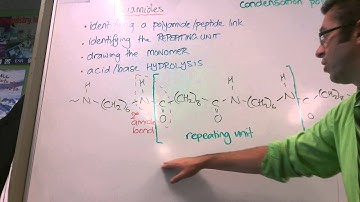 amides
Condensation po
• identifying a polyamide/peptide link
• identifying the REPEATING UNIT
• drawing the MONOMER
• acid/base HYDROLYSIS
H H H
~N-(CH2)6-N-C-(CH2)8-C-N-(CH2)6-N-C-(CH2)8
O O O
amide
bond
repeating unit